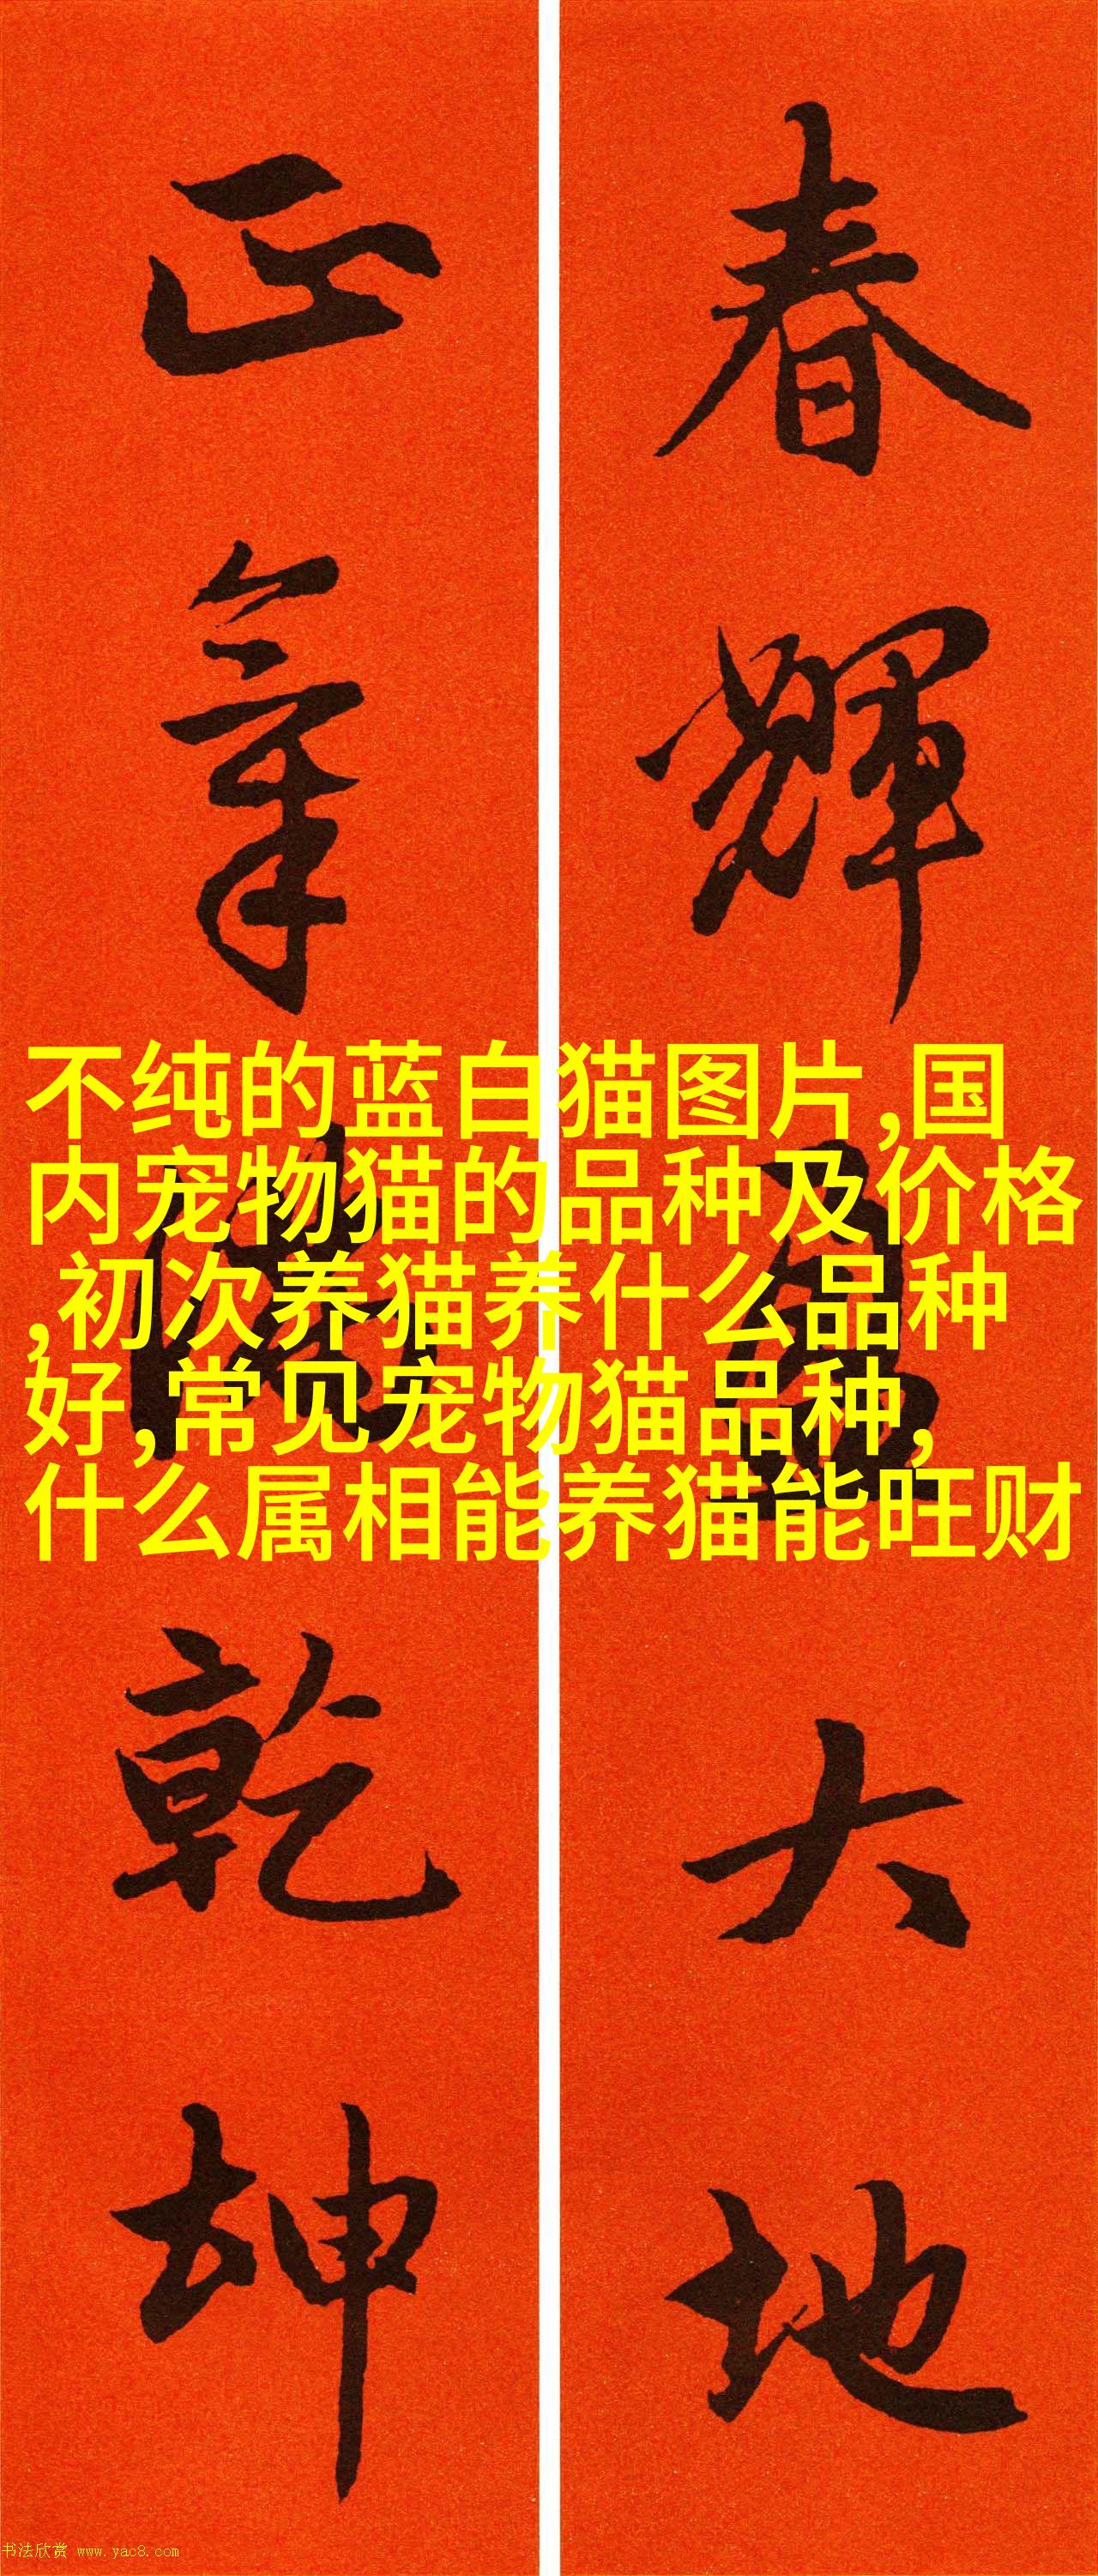 春輝盈大地
正氣滿乾坤
不纯的蓝白猫图片,国
内宠物猫的品种及价格
,初次养猫养什么品种
好,常见宠物猫品种,
什么属相能养猫能旺财
书法欣赏 www.yac8.com